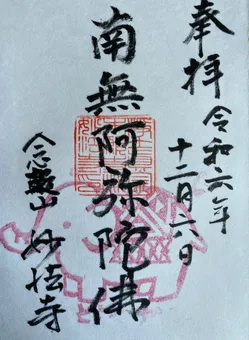 奉拝
令和六年
十二月六日
南無阿弥陀佛
妙法寺